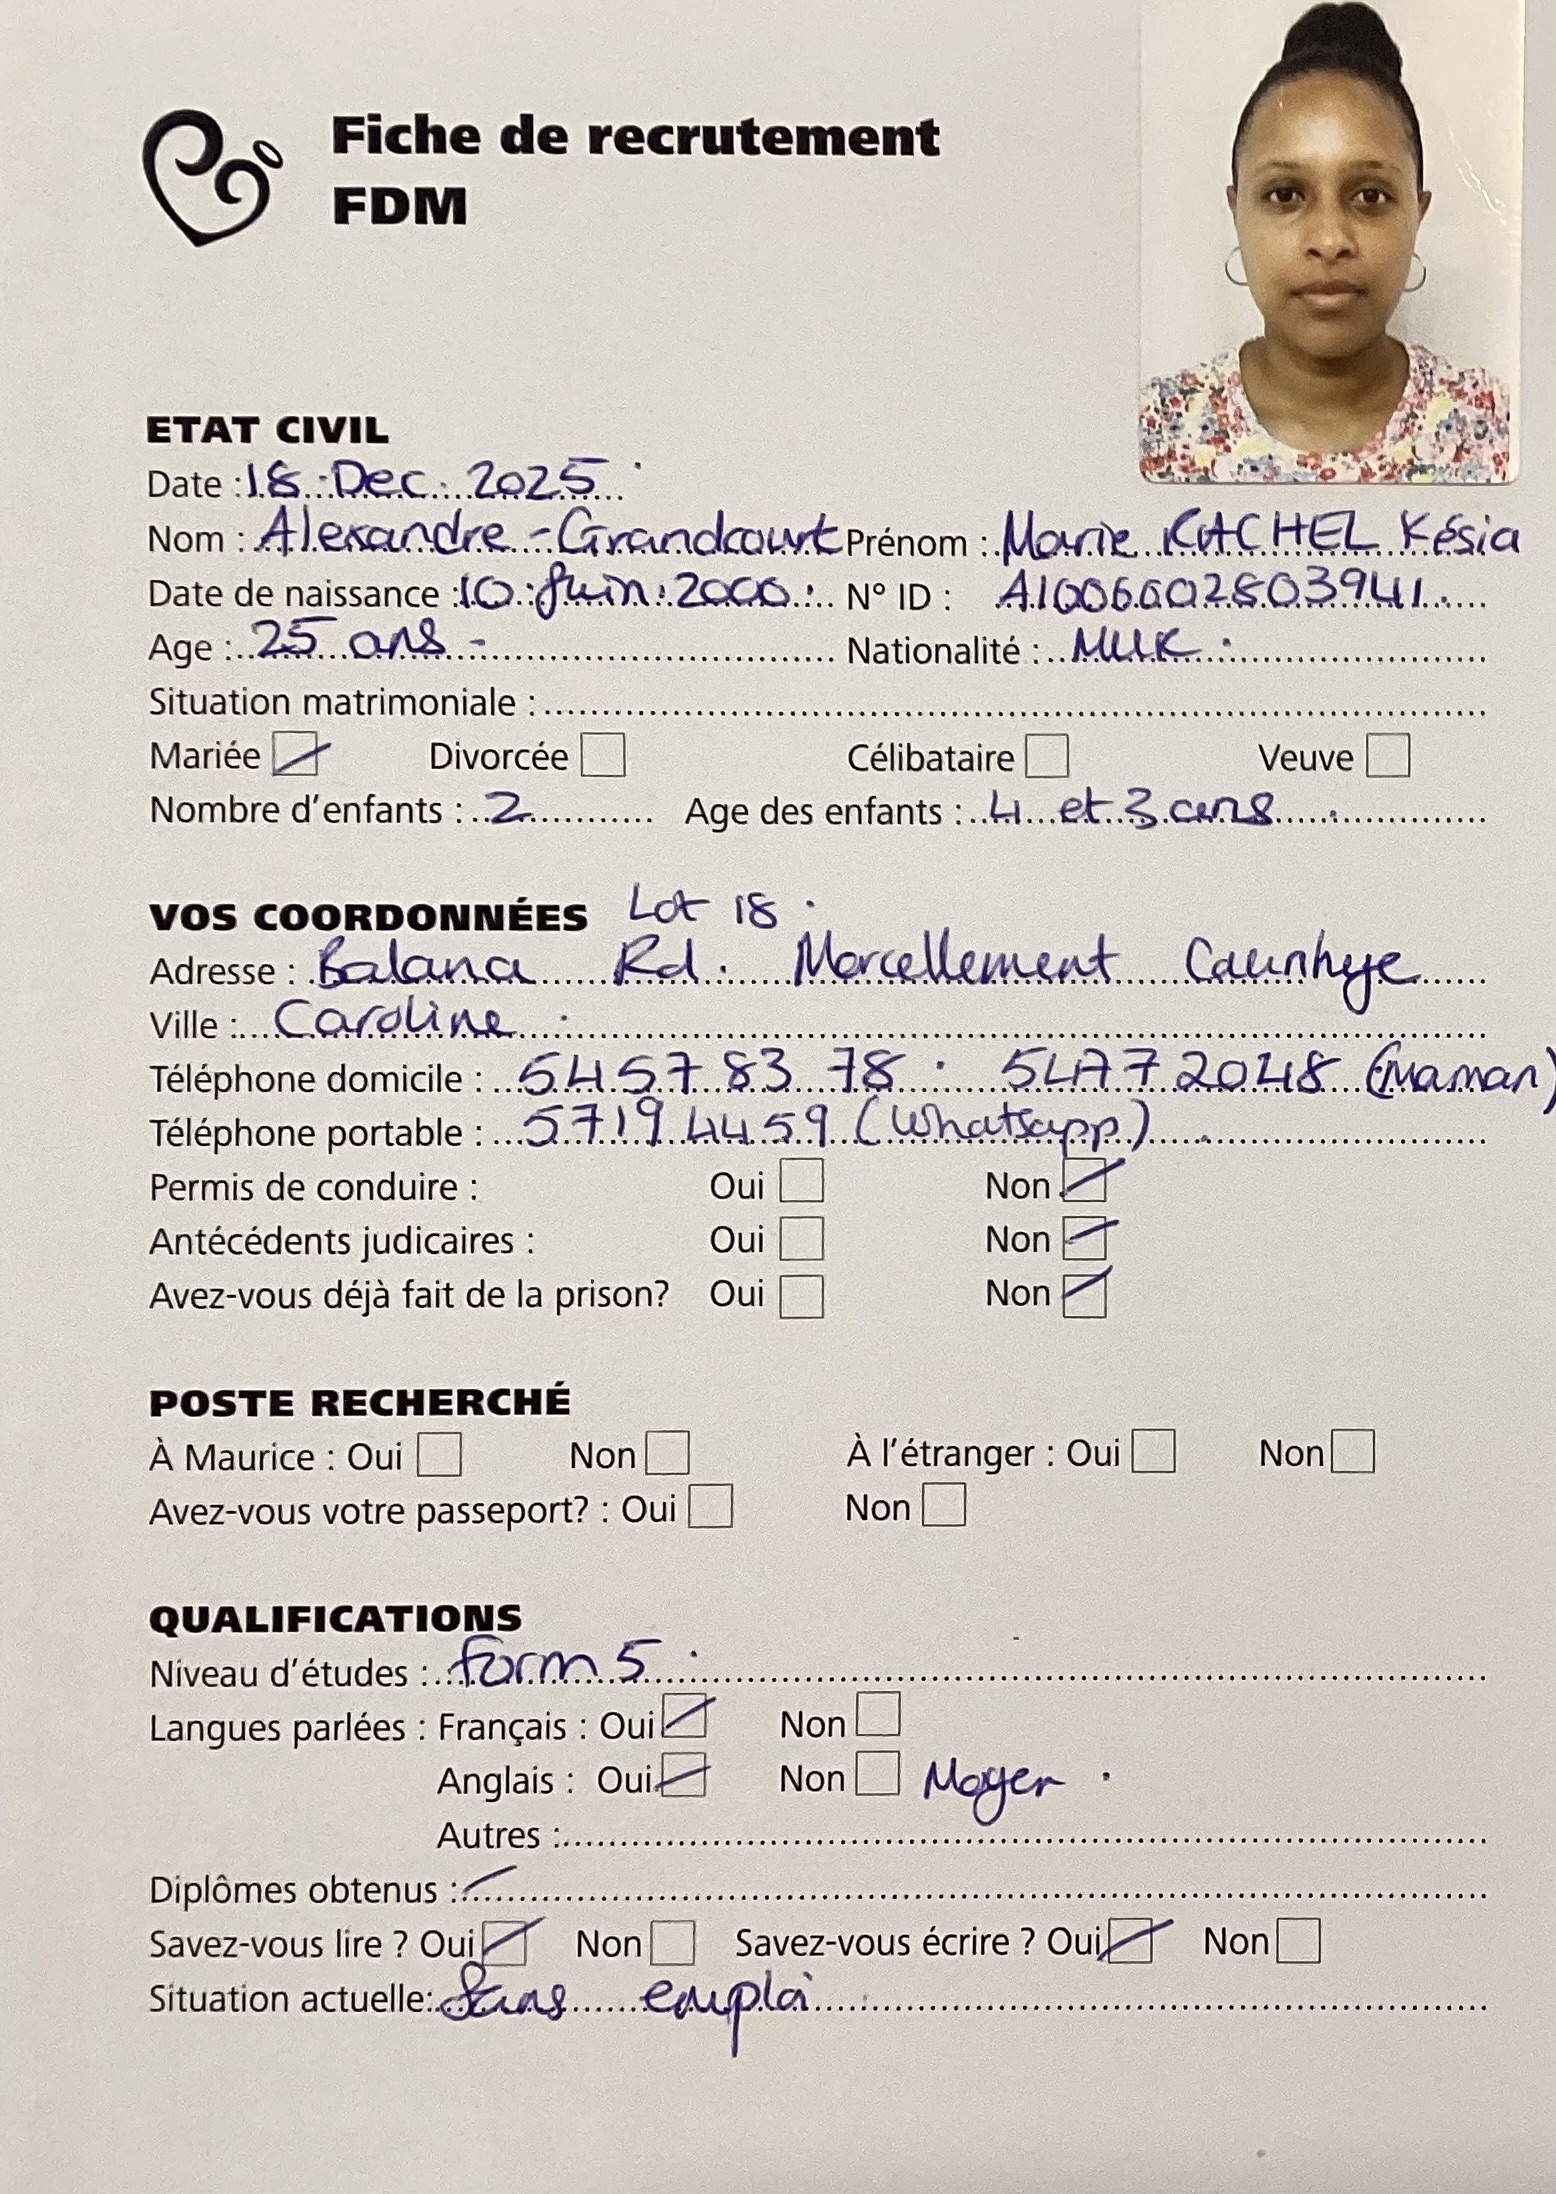 Fiche de recrutement
FDM
ETAT CIVIL
Date : 18 Dec 2025
Nom : Alexandre - Grandcourt Prénom : Marie RACHEL Késia
Date de naissance : 10 Juin 2000 N° ID : A1006002803941
Age : 25 ans - Nationalité :
Situation matrimoniale :
Mariée Divorcée Célibataire Veuve
Nombre d'enfants : 2 Age des enfants : 4 et 3 ans
VOS COORDONNÉES Lot 18
Adresse : Balana Rd. Morcellement Caunhye
Ville : Caroline
Téléphone domicile : 5457 83 78 . 5477 2048 (Maman)
Téléphone portable : 5719 44 59 (Whatsapp)
Permis de conduire : Oui Non
Antécédents judicaires : Oui Non
Avez-vous déjà fait de la prison? Oui Non
POSTE RECHERCHÉ
À Maurice : Oui Non À l'étranger : Oui Non
Avez-vous votre passeport? : Oui Non
QUALIFICATIONS
Niveau d'études : form 5
Langues parlées : Français : Oui Non
Anglais : Oui Non Moyen
Autres :
Diplômes obtenus :
Savez-vous lire ? Oui Non Savez-vous écrire ? Oui Non
Situation actuelle: Sans emploi